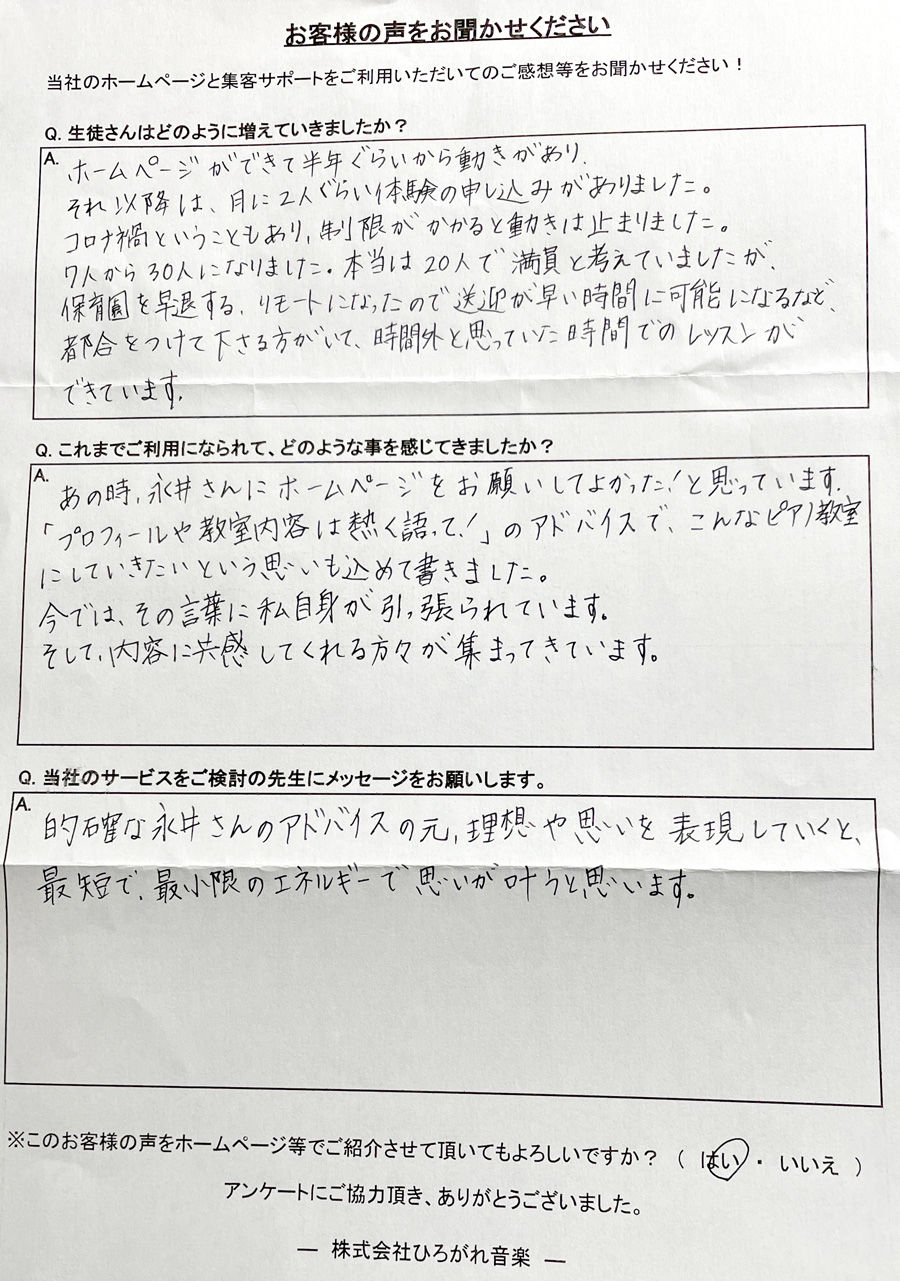 お客様の声をお聞かせください
当社のホームページと集客サポートをご利用いただいてのご感想等をお聞かせください！
Q. 生徒さんはどのように増えていきましたか？
A. ホームページができて半年ぐらいから動きがあり、
それ以降は、月に2人ぐらい体験の申し込みがありました。
コロナ禍ということもあり、制限がかかると動きは止まりました。
7人から30人になりました。本当は20人で満員と考えていましたが、
保育園を早退する、リモートになったので送迎が早い時間に可能になるなど、
都合をつけて下さる方がいて、時間外と思っていた時間でのレッスンが
できています。
Q. これまでご利用になられて、どのような事を感じてきましたか？
A. あの時、永井さんにホームページをお願いしてよかった！と思っています。
「プロフィールや教室内容は熱く語って！」のアドバイスで、こんなピアノ教室
にしていきたいという思いも込めて書きました。
今では、その言葉に私自身が引っ張られています。
そして、内容に共感してくれる方々が集まってきています。
Q. 当社のサービスをご検討の先生にメッセージをお願いします。
A. 的確な永井さんのアドバイスの元、理想や思いを表現していくと、
最短で、最小限のエネルギーで思いが叶うと思います。
※このお客様の声をホームページ等でご紹介させて頂いてもよろしいですか？（ はい ・ いいえ ）
アンケートにご協力頂き、ありがとうございました。
― 株式会社ひろがれ音楽 ―